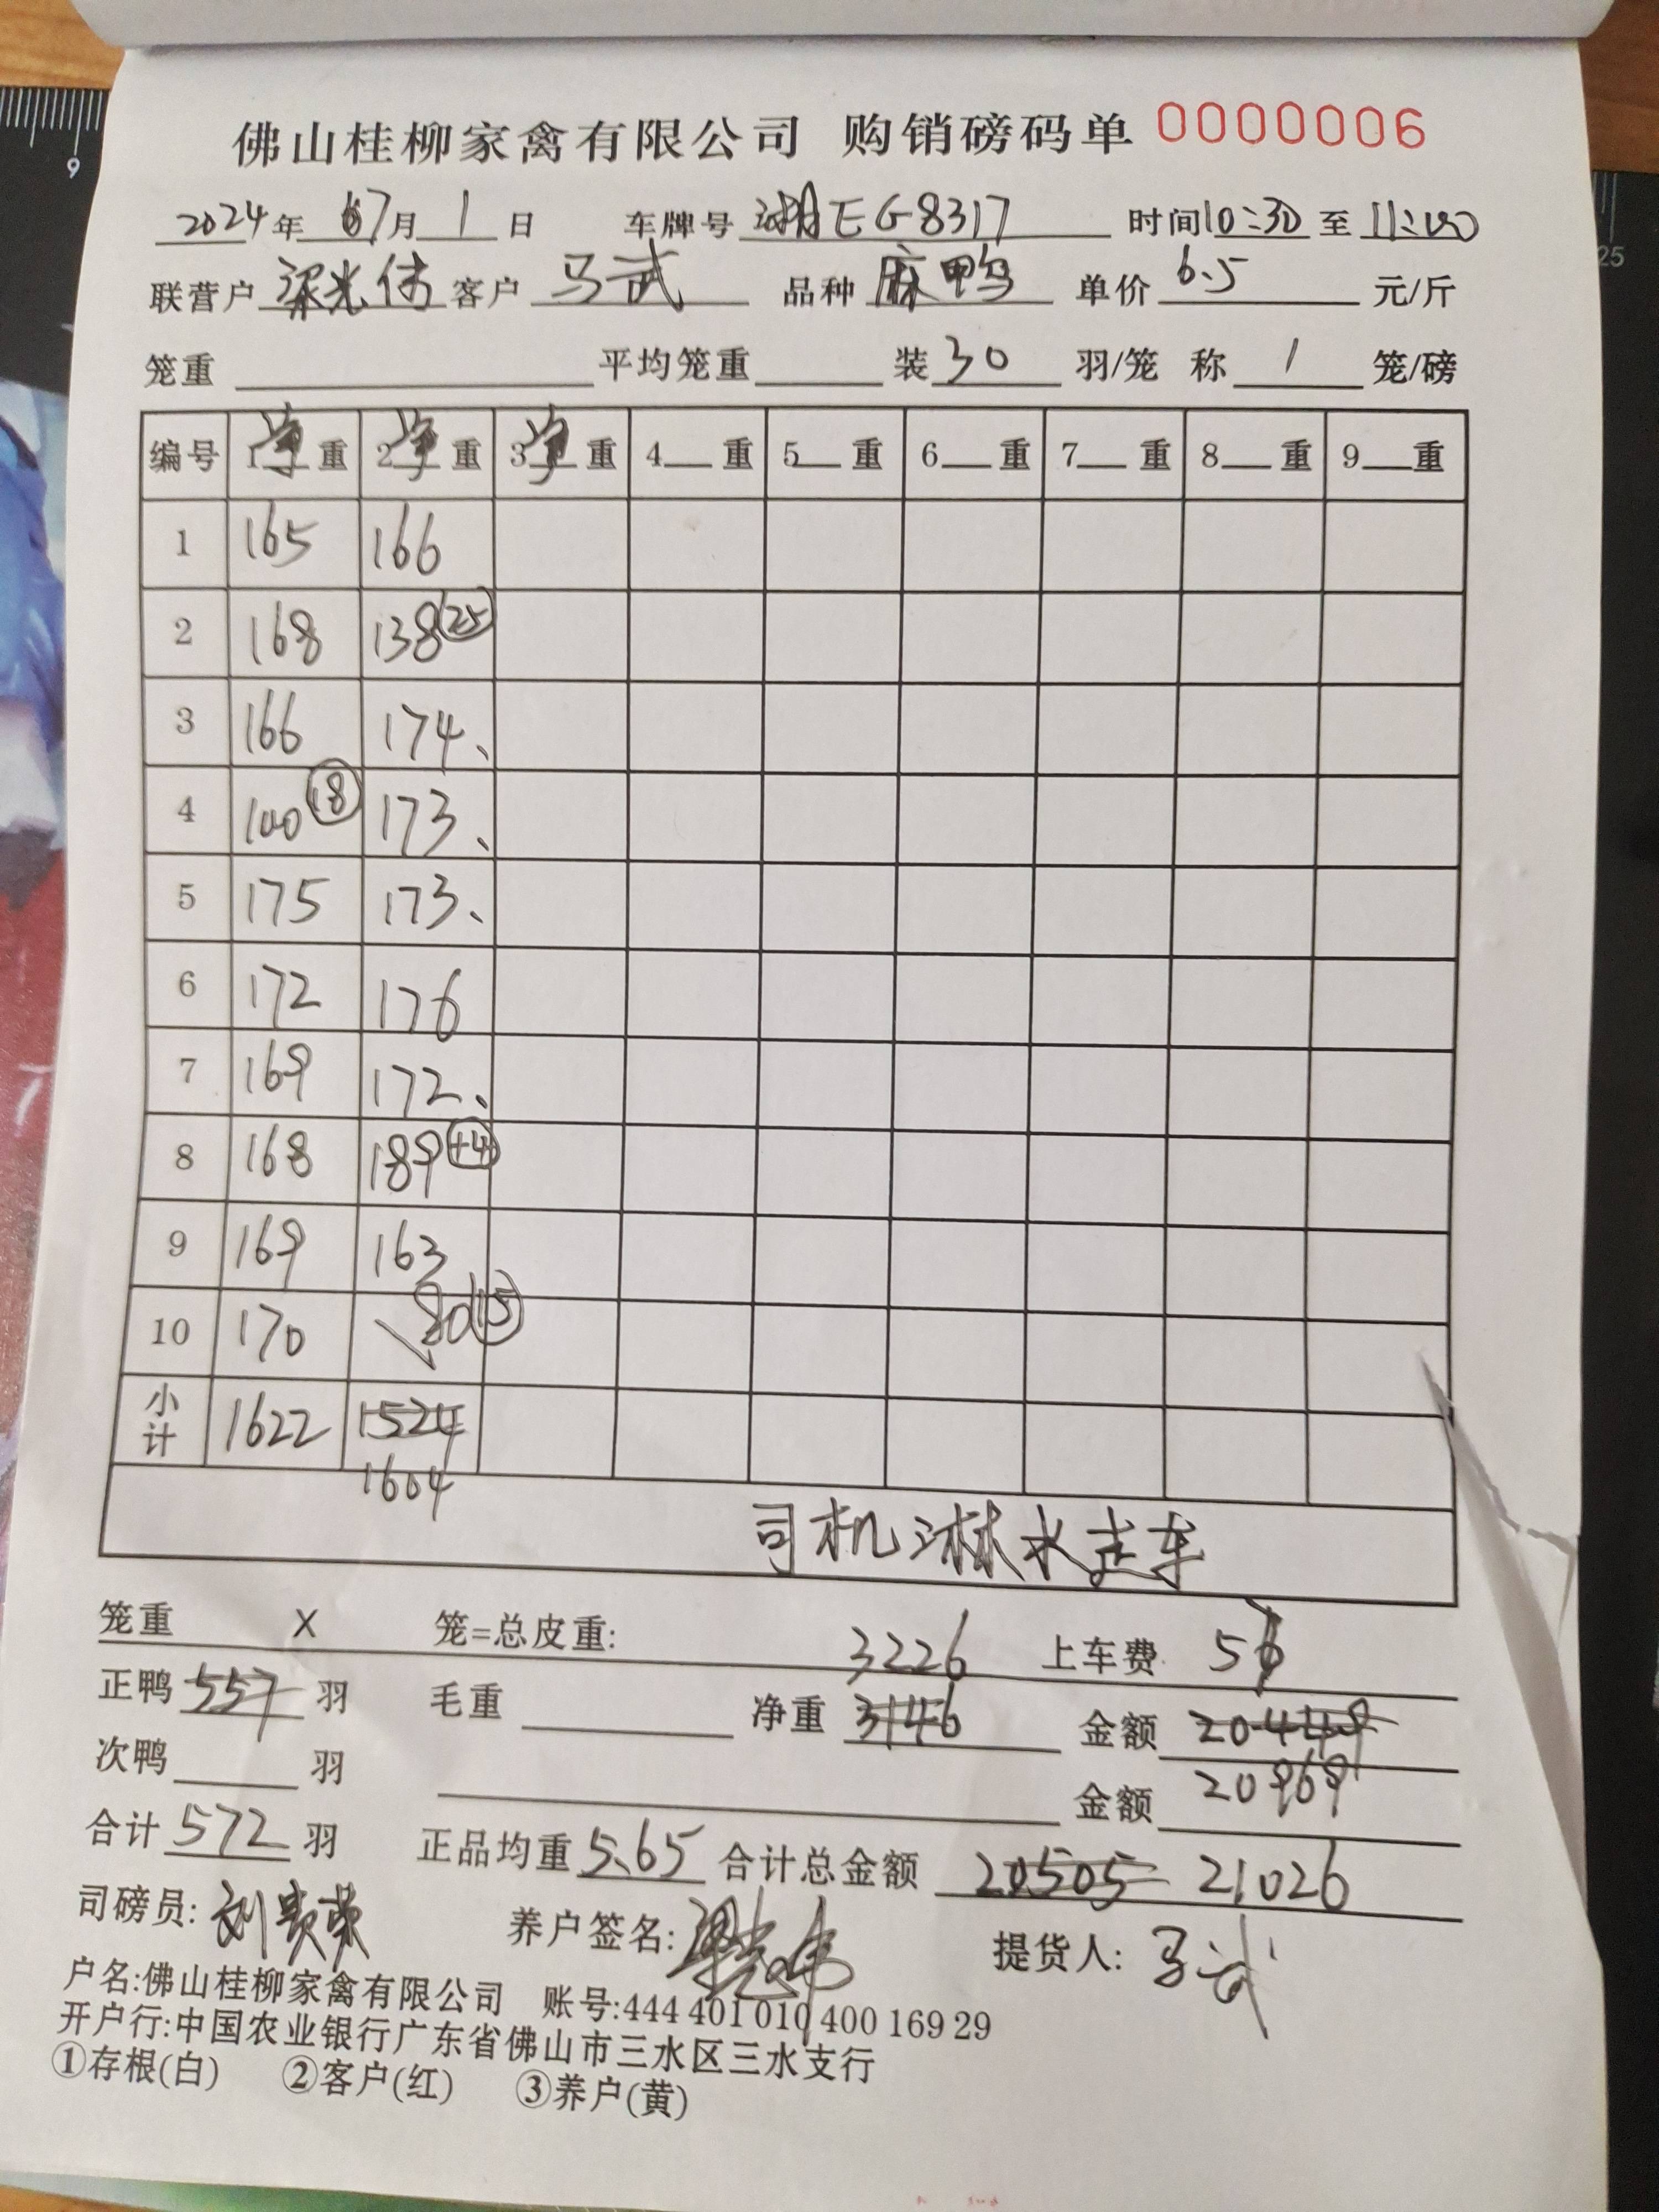 佛山桂柳家禽有限公司 购销磅码单 0000006
2024年 07月 1日 车牌号 湘EG8317 时间 10:30 至 11:00
联营户 梁光伟 客户 马武 品种 麻鸭 单价 6.5 元/斤
笼重 平均笼重 装 30 羽/笼 称 1 笼/磅
编号 1净重 2净重 3净重 4 重 5 重 6 重 7 重 8 重 9 重
1 165 166
2 168 138 (25)
3 166 174、
4 100 (18) 173、
5 175 173、
6 172 176
7 169 172、
8 168 189 (+4)
9 169 163
10 170 80 (15)
小计 1622 1524
1604
司机淋水走车
笼重 X 笼=总皮重: 3226 上车费 57
正鸭 557 羽 毛重 净重 3146 金额 20449
次鸭 羽 金额 20969
合计 572 羽 正品均重 5.65 合计总金额 20505 21026
司磅员: 刘贵荣 养户签名: 梁光伟 提货人: 马武
户名:佛山桂柳家禽有限公司 账号:444 401 010 400 169 29
开户行:中国农业银行广东省佛山市三水区三水支行
①存根(白) ②客户(红) ③养户(黄)
9
25